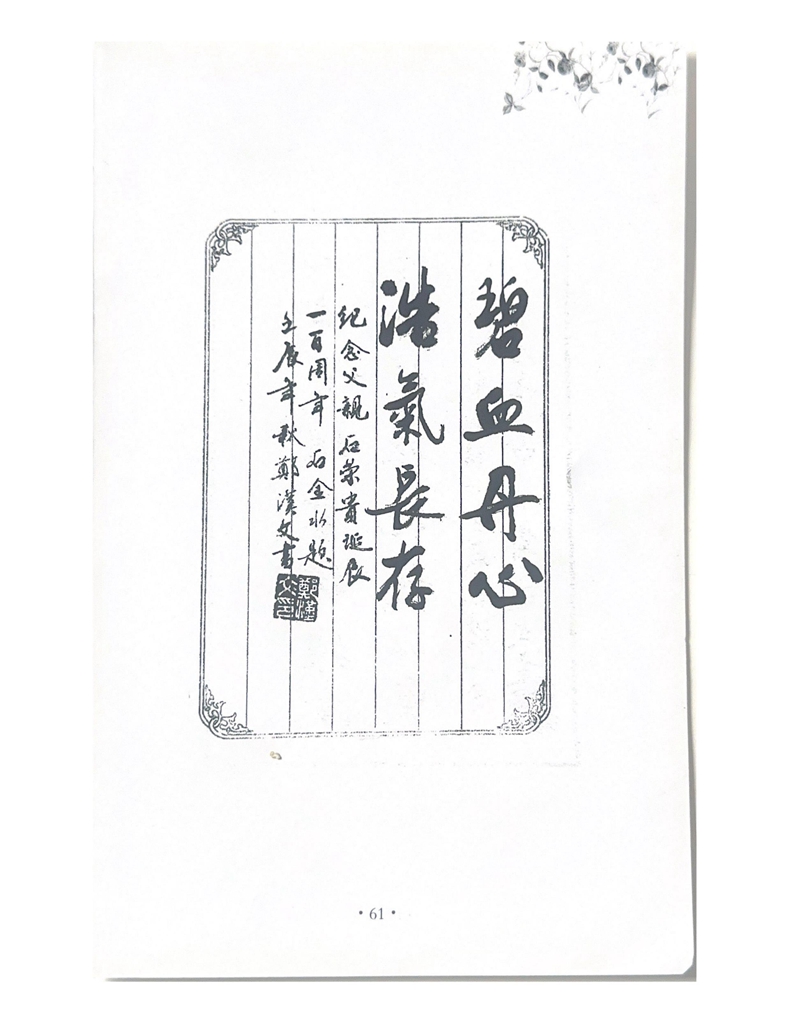 碧血丹心
浩氣長存
纪念父親石榮貴诞辰
一百周年 石金水题
壬辰年秋鄭漢文書
鄭漢文印
• 61 •